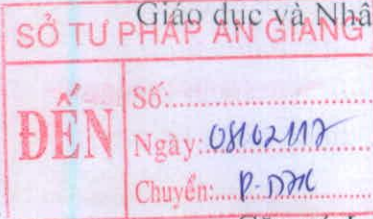 Giáo dục và Nhâ
SỞ TƯ PHÁP AN GIANG
ĐẾN
Số:
Ngày: 08/02/17
Chuyển: